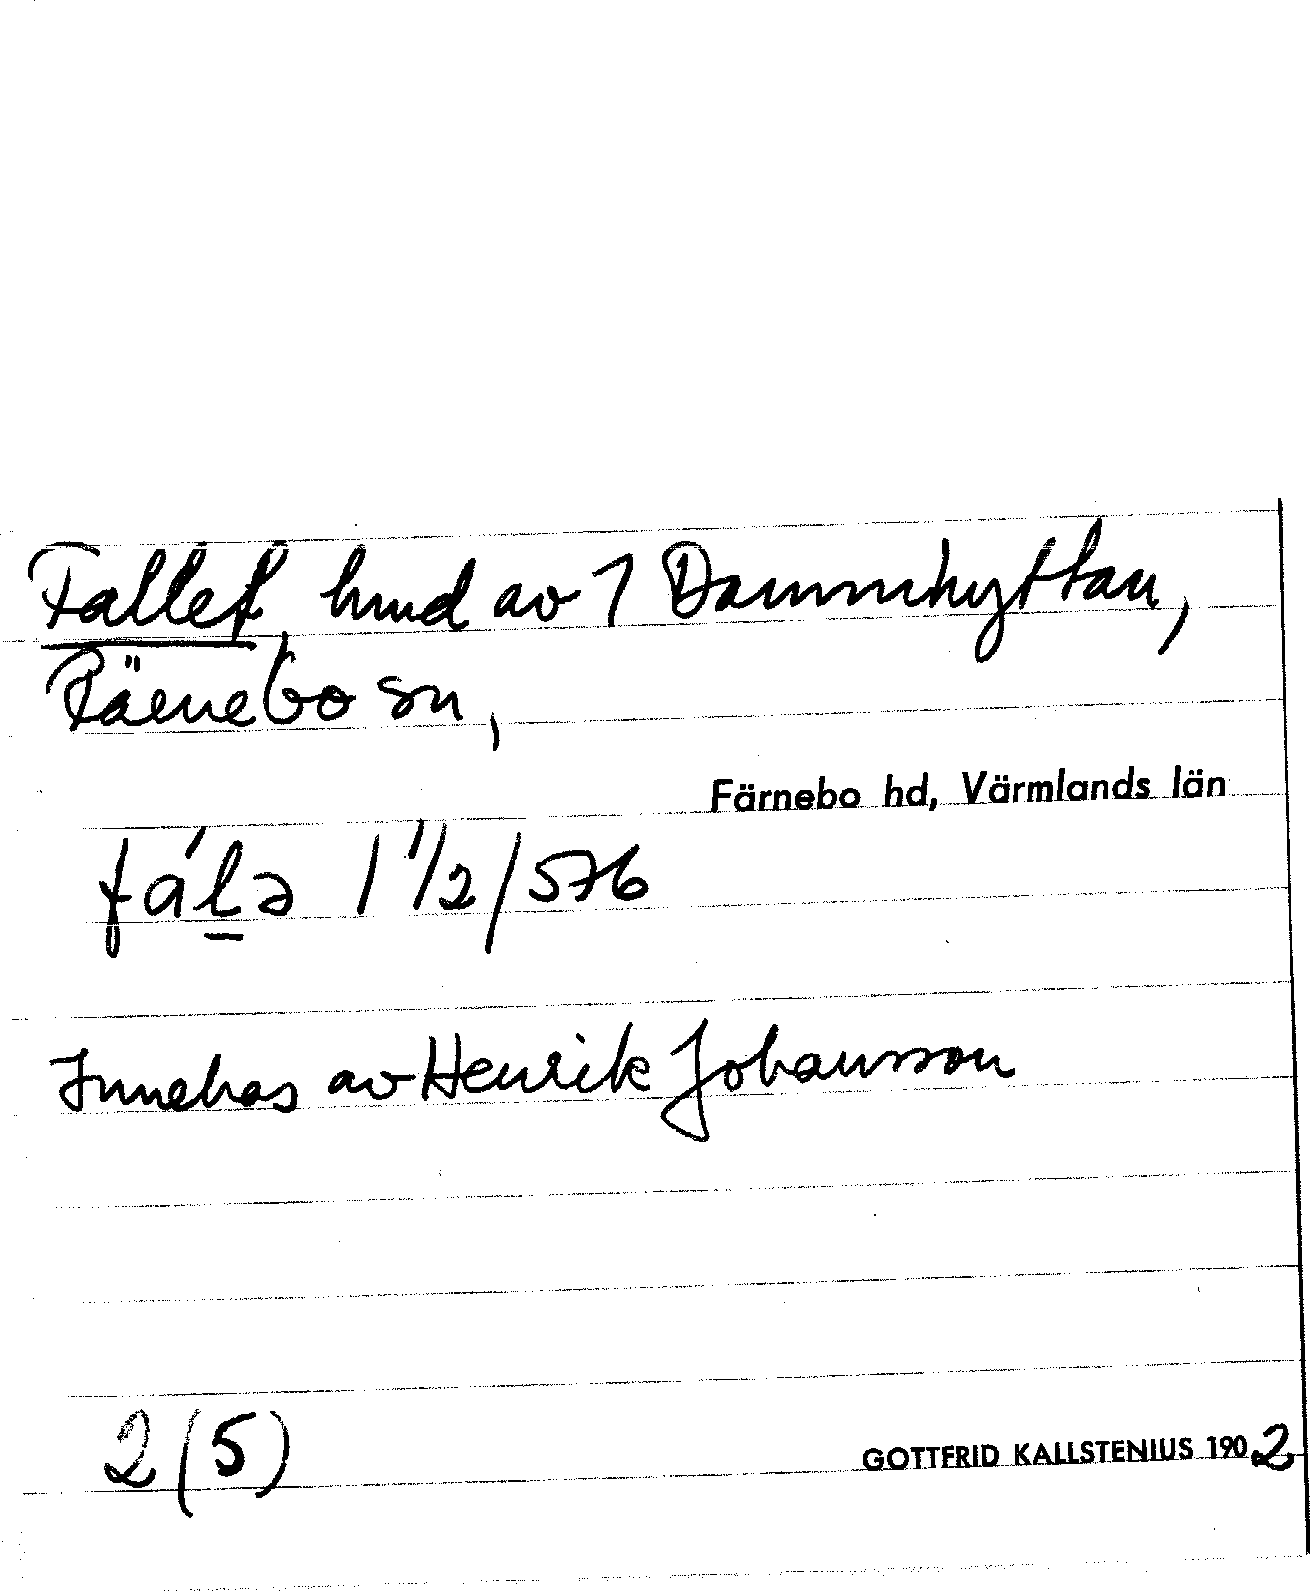 Fallet, hmd av 1 Dammhyttan,
Färnebo sn,
Färnebo hd, Värmlands län
fáḻə 1 1/2/576
Innehas av Henrik Johansson
2(5)
GOTTFRID KALLSTENIUS 1902